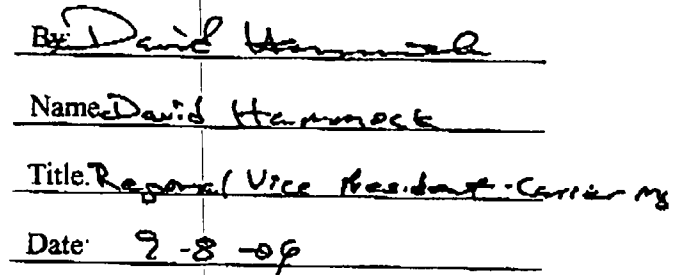 By: David Hammock
Name: David Hammock
Title: Regional Vice President - Carrier Mg
Date: 9-8-06